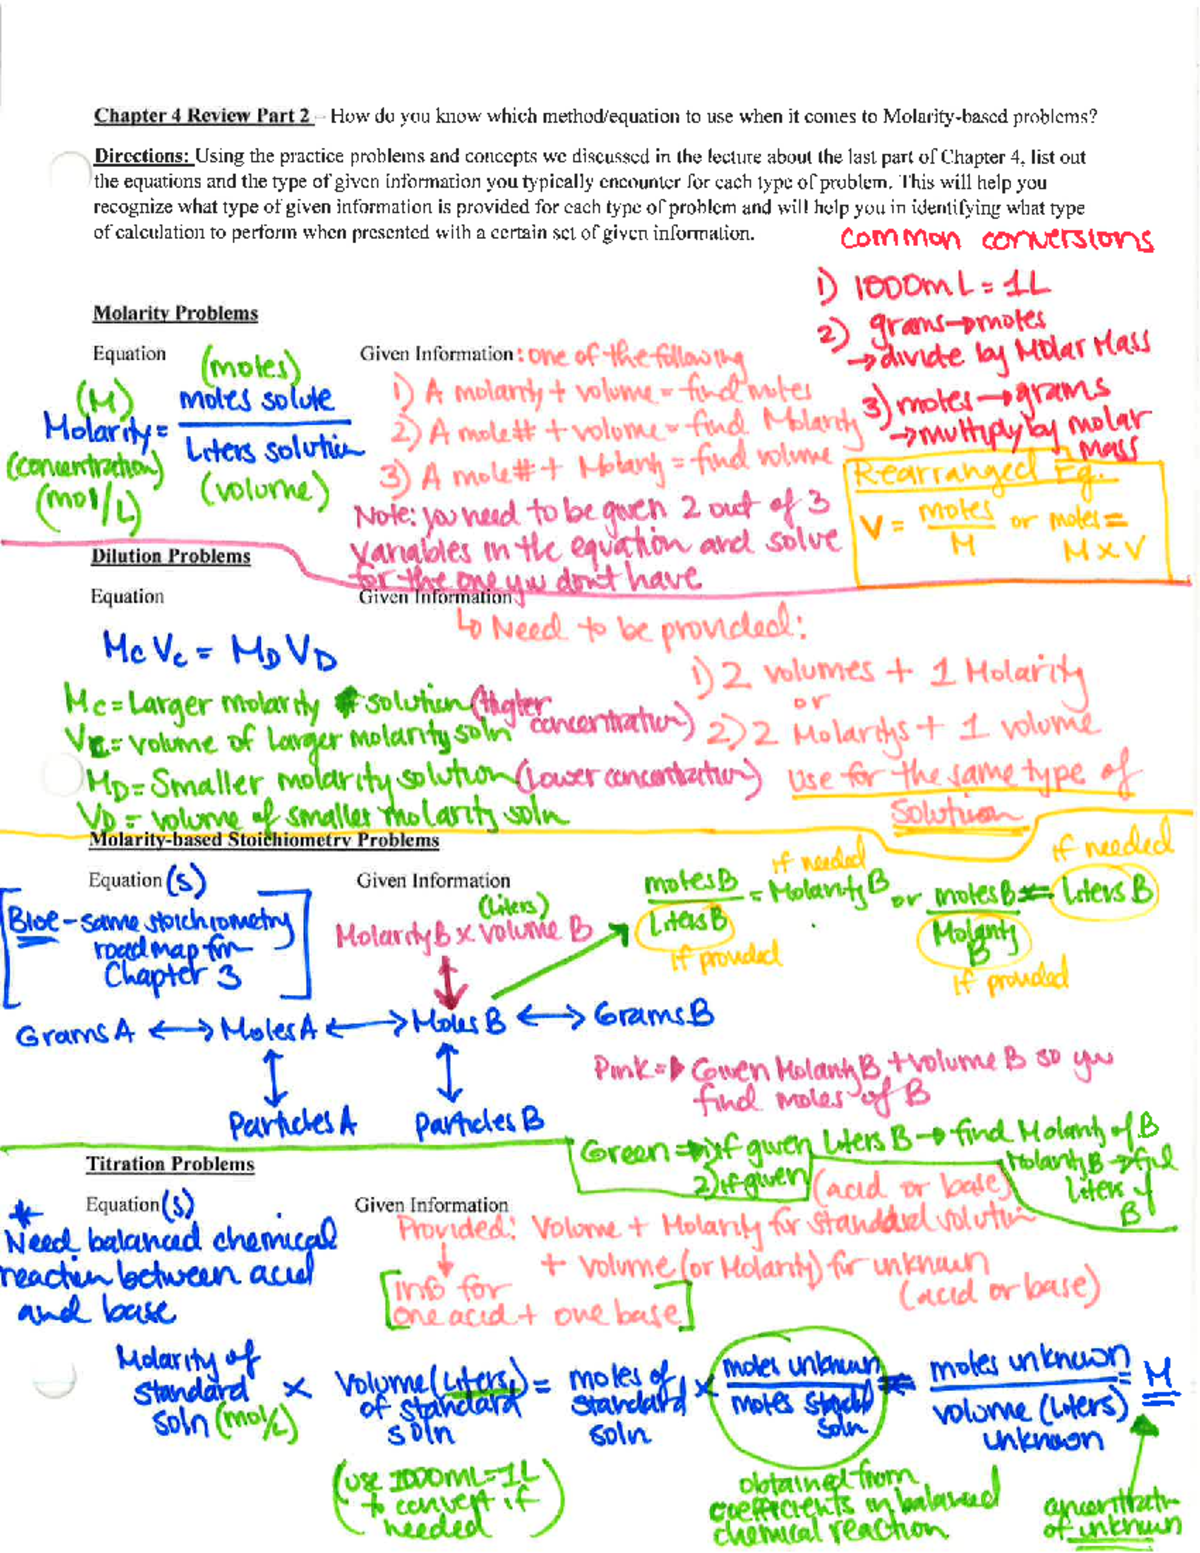 Chapter 4 Review Part 2 – How do you know which method/equation to use when it comes to Molarity-based problems?
Directions: Using the practice problems and concepts we discussed in the lecture about the last part of Chapter 4, list out
the equations and the type of given information you typically encounter for each type of problem. This will help you
recognize what type of given information is provided for each type of problem and will help you in identifying what type
of calculation to perform when presented with a certain set of given information.
common conversions
1) 1000mL = 1L
2) grams→moles
→divide by Molar Mass
3) moles→grams
→multiply by molar
mass
Molarity Problems
Equation
(moles)
(M) moles solute
Molarity = 
Liters solution
(concentration)
(volume)
(mol/L)
Given Information: one of the following
1) A molarity + volume = find moles
2) A mole# + volume = find Molarity
3) A mole# + Molarity = find volume
Note: you need to be given 2 out of 3
variables in the equation and solve
for the one you don't have
Rearranged Eq.
V = moles/M or moles =
M x V
Dilution Problems
Equation
Given Information
McVc = MDVD
Mc = Larger molarity solution (Higher
concentration)
Vc = volume of Larger molarity soln
MD = Smaller molarity solution (Lower concentration)
VD = volume of smaller molarity soln
↳ Need to be provided:
1) 2 volumes + 1 Molarity
or
2) 2 Molaritys + 1 volume
use for the same type of
solution
Molarity-based Stoichiometry Problems
Equation(s)
Blue - same stoichiometry
roadmap for
Chapter 3
Given Information
(liters)
Molarity B x volume B
if needed
moles B/Liters B = Molarity B or moles B/Molarity B = Liters B
if provided
if needed
if provided
Grams A ↔ Moles A ↔ Moles B ↔ Grams B
Particles A
Particles B
Pink => Given Molarity B + volume B so you
find moles of B
Green => 1) if given Liters B → find Molarity of B
2) if given Molarity B → find
liters of
B
Titration Problems
Equation(s)
* Need balanced chemical
reaction between acid
and base
Given Information
(acid or base)
Provided: Volume + Molarity for standard solution
+ volume (or Molarity) for unknown
(acid or base)
[Info for
one acid + one base]
Molarity of
standard
soln (mol/L)
x
Volume (Liters)
of standard
soln
=
moles of
standard
soln
x
moles unknown
moles standard
soln
=
moles unknown
volume (liters)
unknown
= M
(use 1000mL = 1L
to convert if
needed)
obtained from
coefficients in balanced
chemical reaction
concentration
of unknown